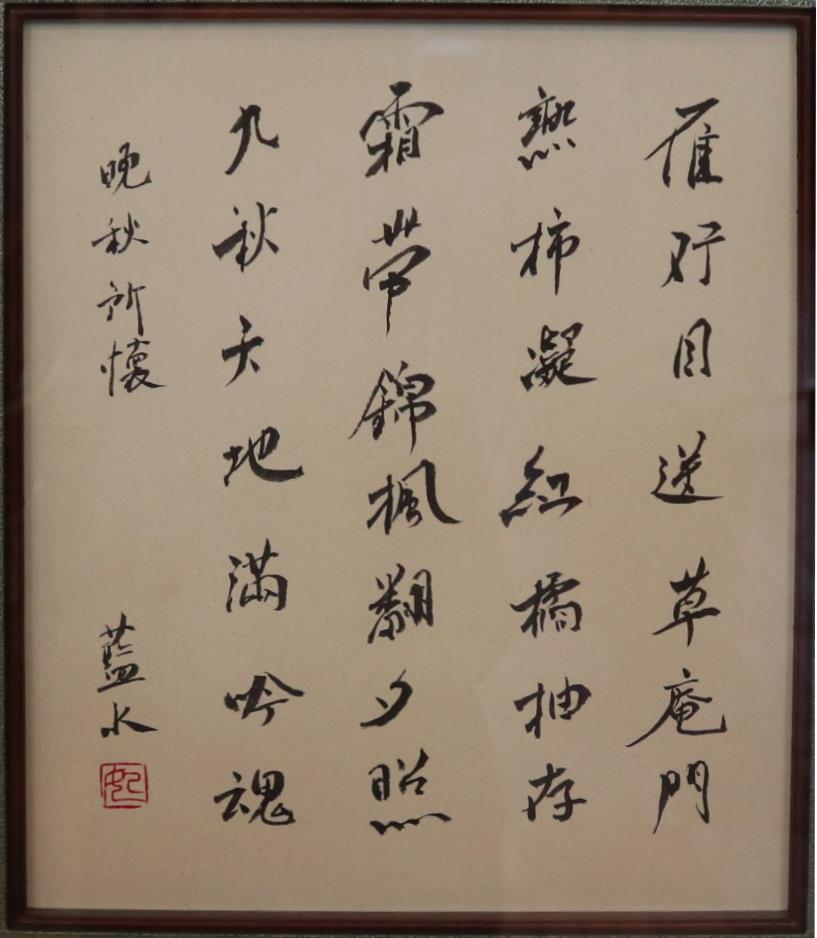 雁行目送草庵門
熟柿凝紅橘柚存
霜帶錦楓翻夕照
九秋天地滿吟魂
晚秋所懷
藍水